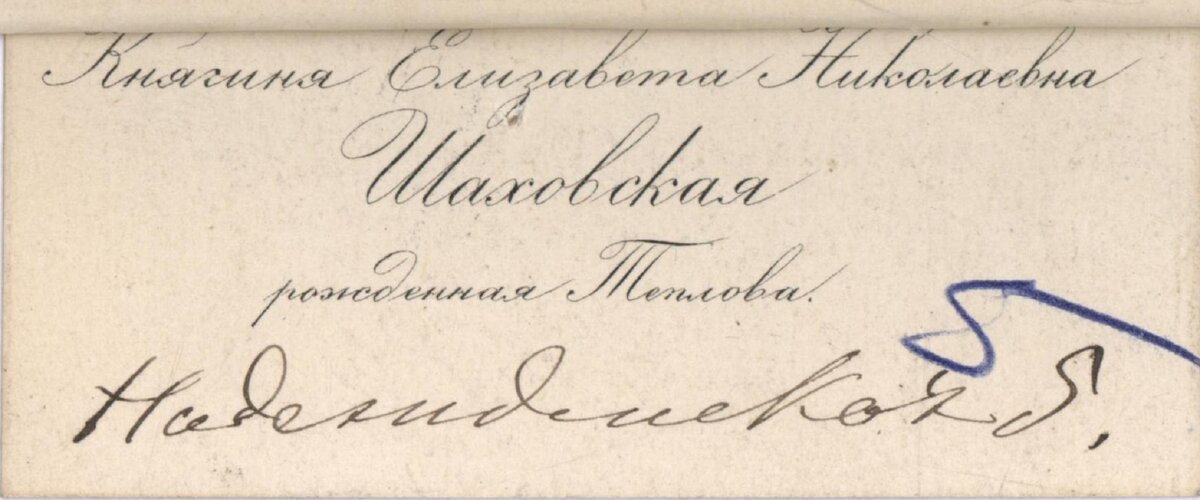 Княгиня Елизавета Николаевна
Шаховская
рожденная Теплова.
Надеждинская 5,
5